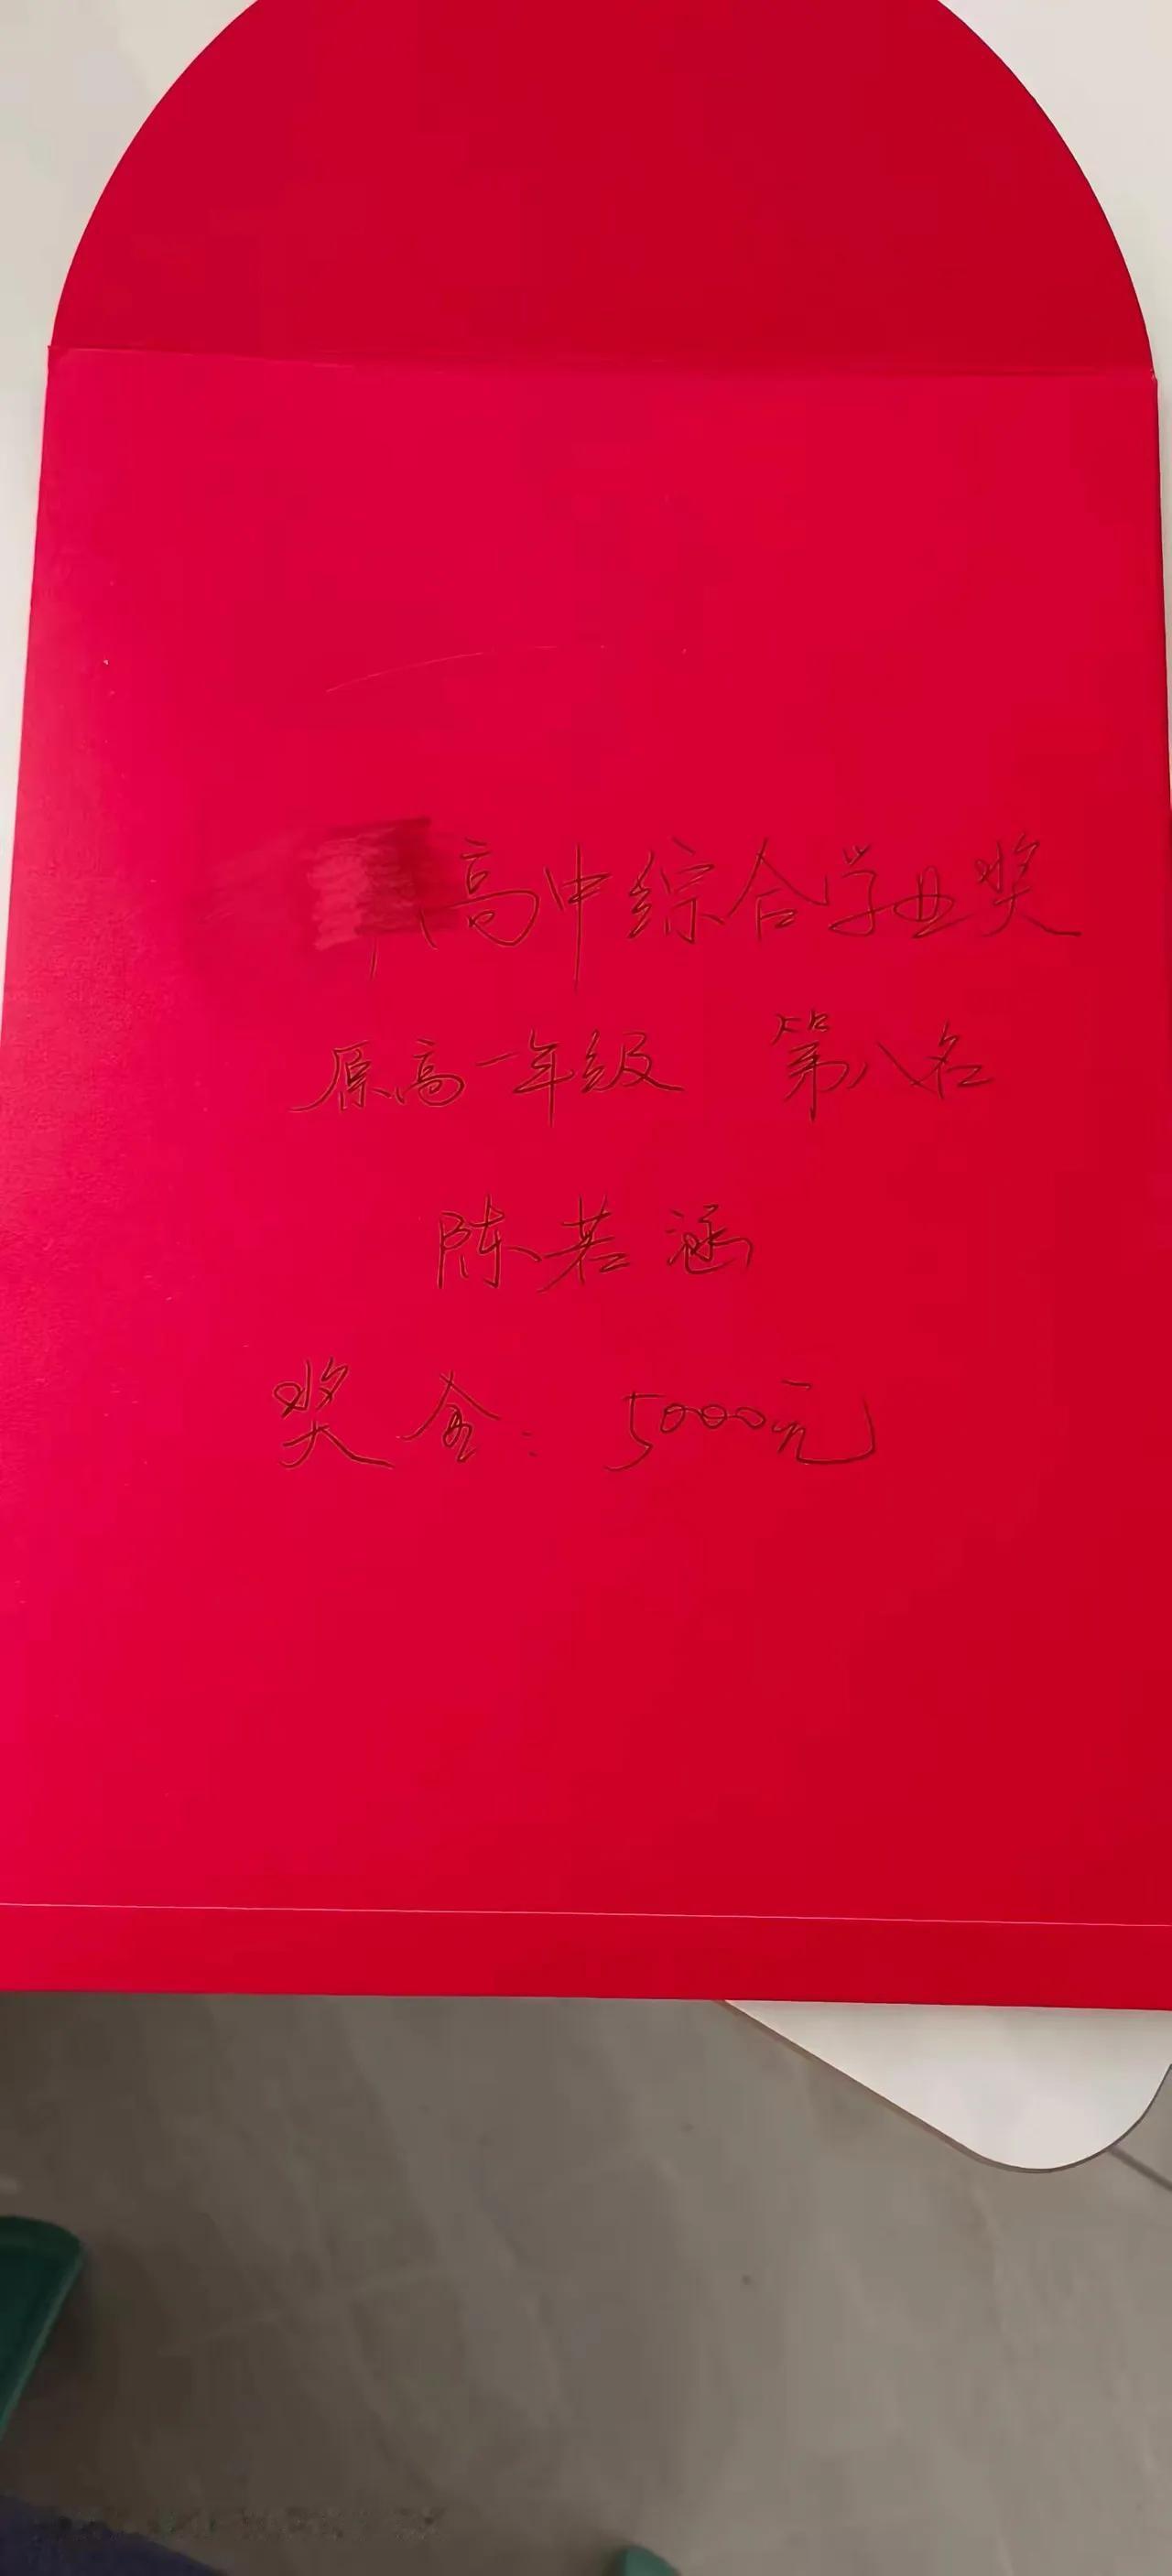 高中综合学业奖
原高一年级 第八名
陈若涵
奖金：5000元